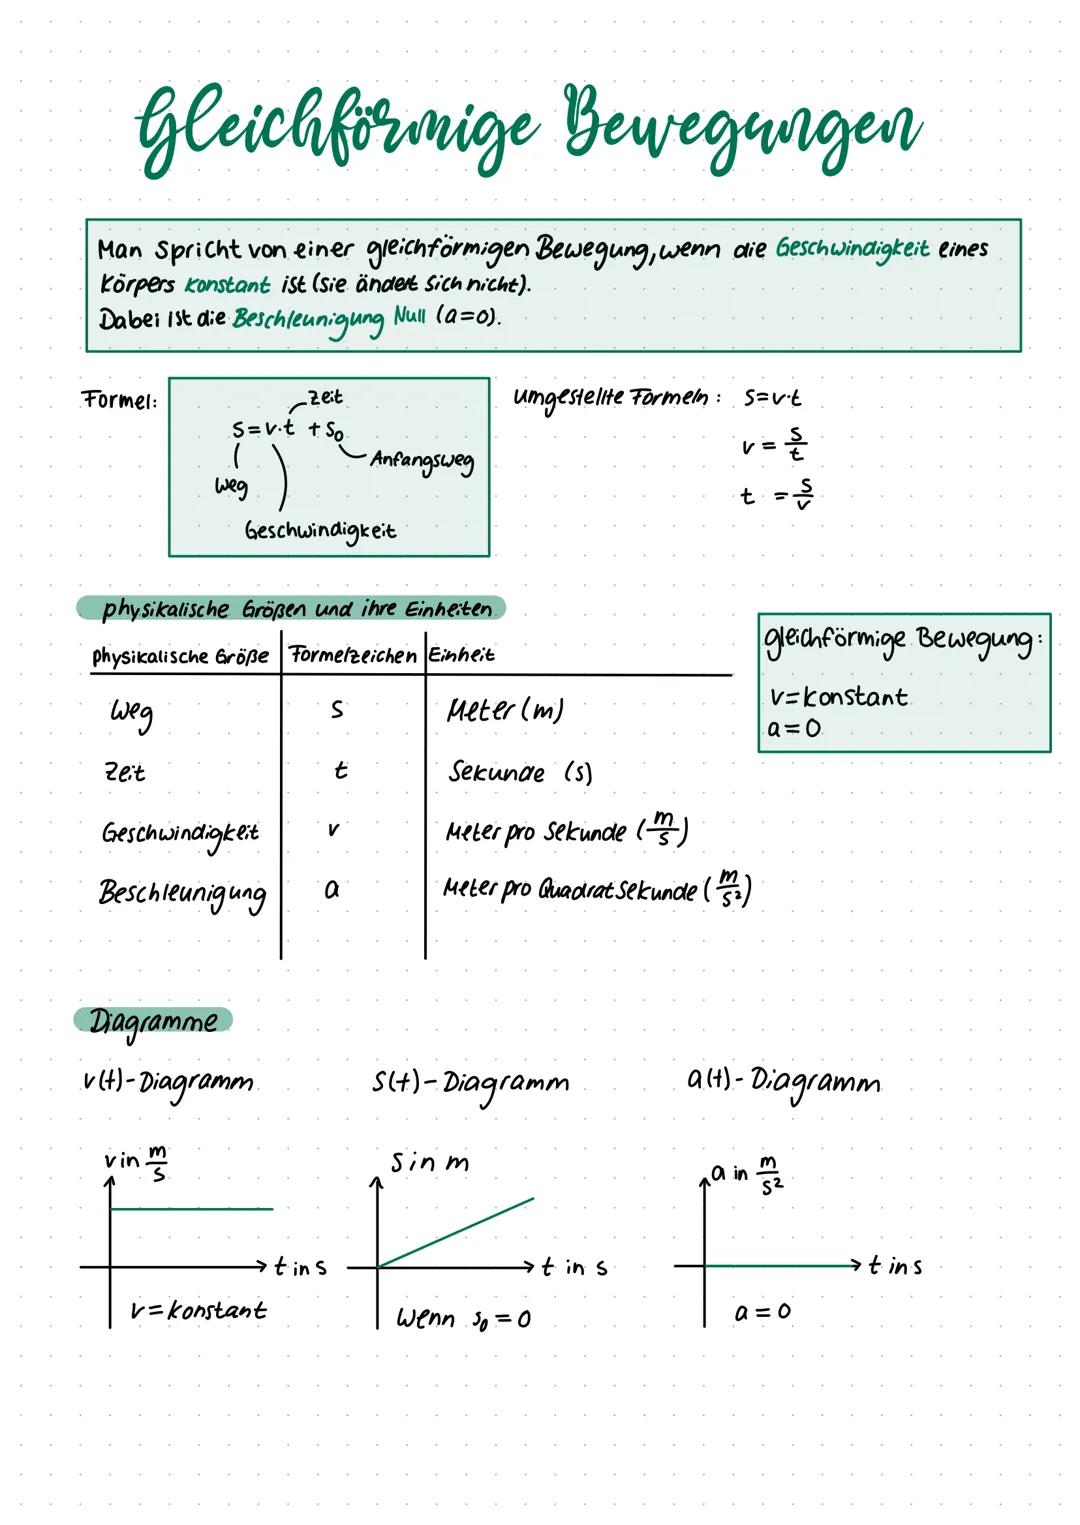 Gleichförmige Bewegungen
Man spricht von einer gleichförmigen Bewegung, wenn die Geschwindigkeit eines
Körpers konstant ist (sie ändert sich nicht).
Dabei ist die Beschleunigung Null (a=0).
Formel:
Zeit
s=v·t + s₀
Anfangsweg
Weg
Geschwindigkeit
umgestellte Formeln: s=v·t
v = s/t
t = s/v
physikalische Größen und ihre Einheiten
physikalische Größe Formelzeichen Einheit
Weg s Meter (m)
Zeit t Sekunde (s)
Geschwindigkeit v Meter pro Sekunde (m/s)
Beschleunigung a Meter pro Quadratsekunde (m/s²)
gleichförmige Bewegung:
v=konstant
a=0
Diagramme
v(t)-Diagramm s(t)-Diagramm a(t)-Diagramm
v in m/s
t in s
v=konstant
s in m
t in s
Wenn s₀=0
a in m/s²
t in s
a=0